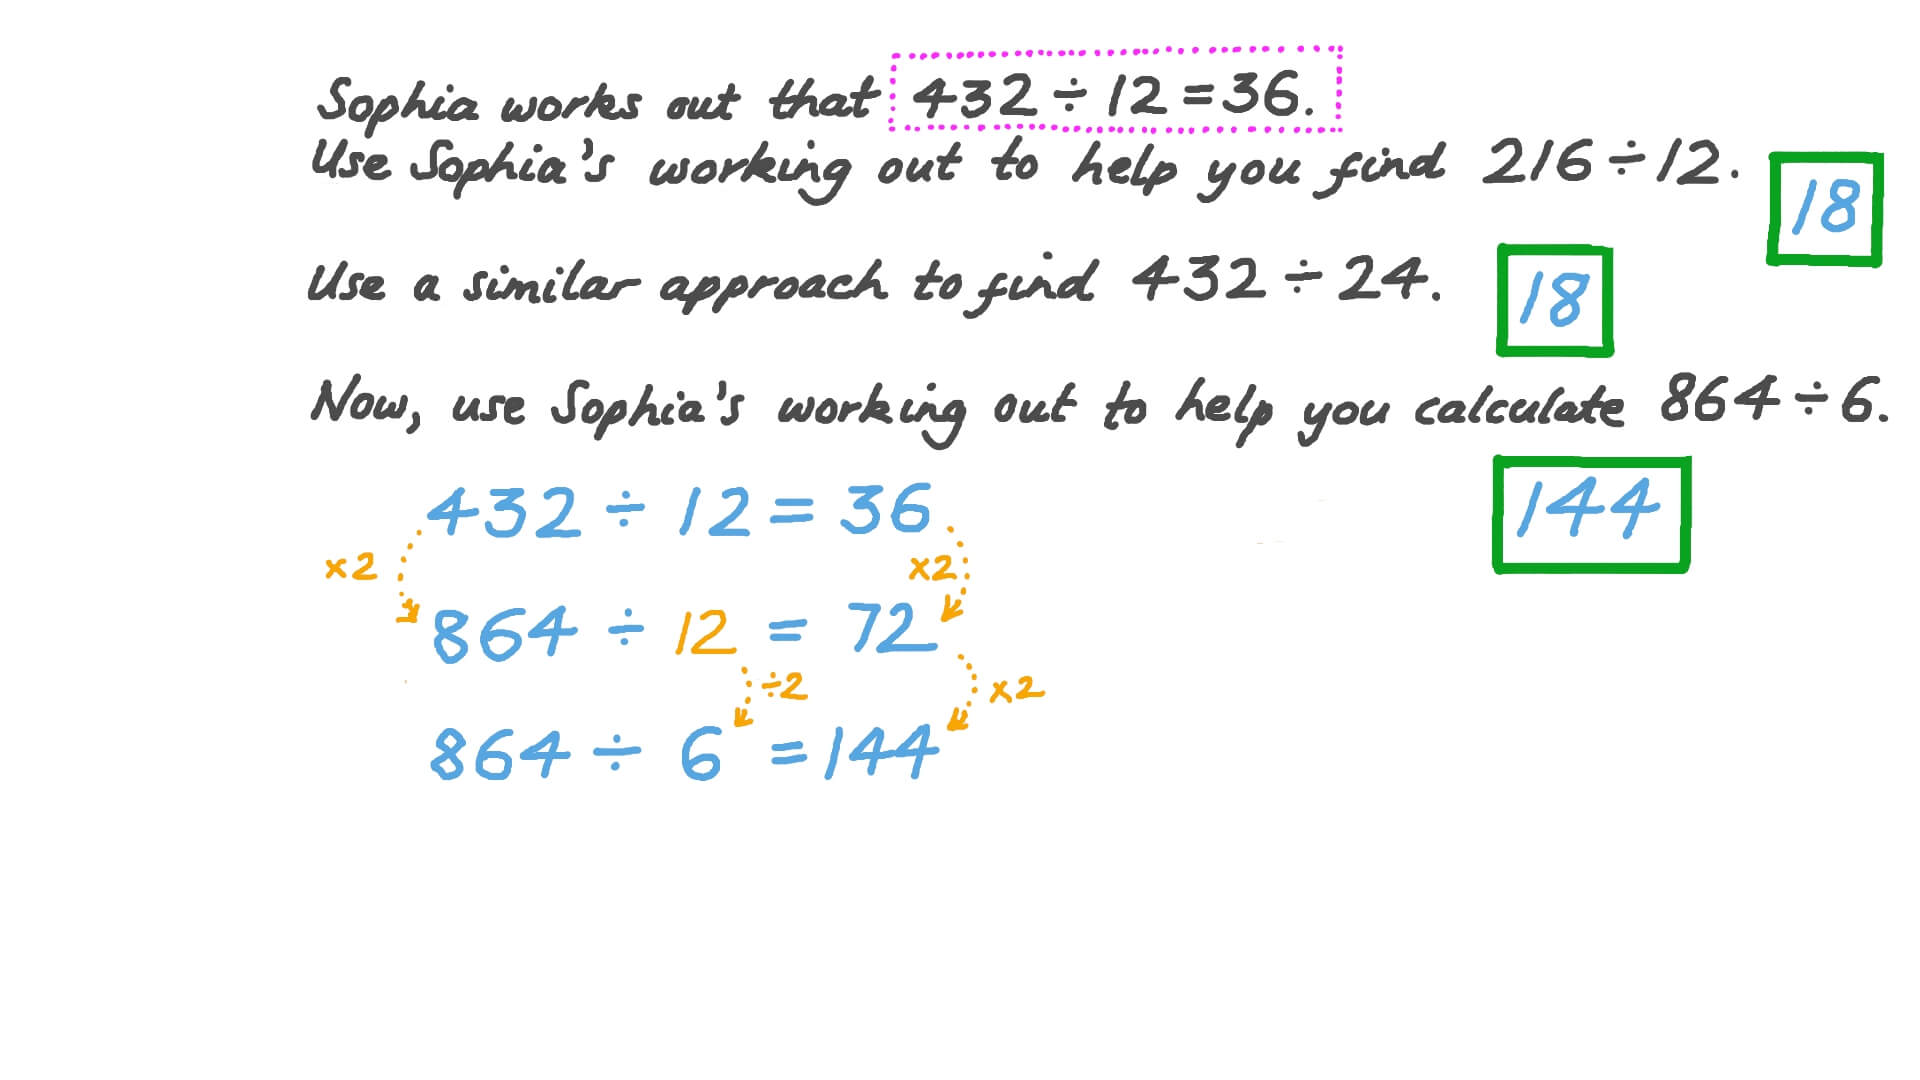 Sophia works out that 432 ÷ 12 = 36.
Use Sophia's working out to help you find 216 ÷ 12.
18
Use a similar approach to find 432 ÷ 24.
18
Now, use Sophia's working out to help you calculate 864 ÷ 6.
144
432 ÷ 12 = 36
×2 ×2
864 ÷ 12 = 72
÷2 ×2
864 ÷ 6 = 144